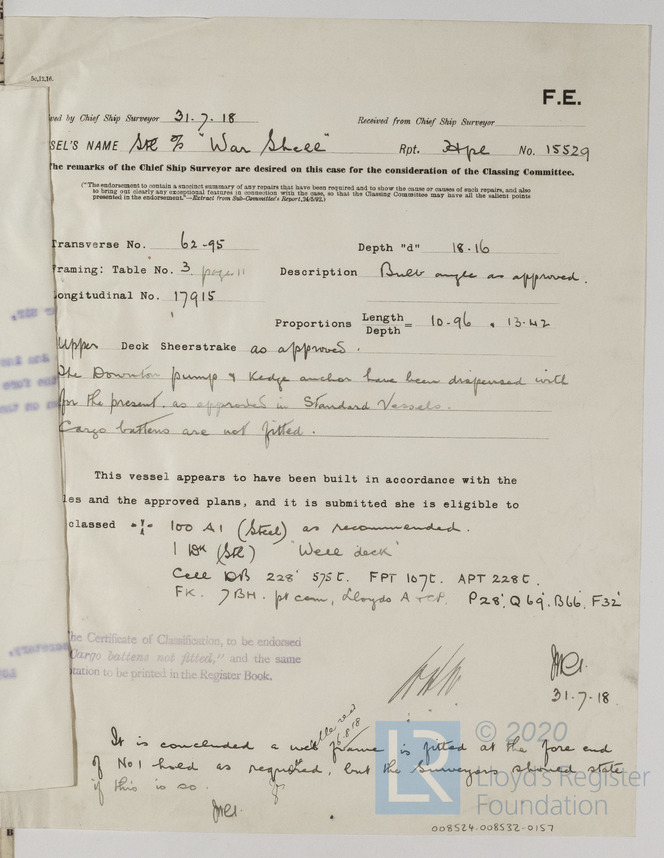 5c,12,16.
F.E.
ved by Chief Ship Surveyor 31.7.18 Received from Chief Ship Surveyor
SEL'S NAME Stl S/S "War Shell" Rpt. Hpl No. 15529
he remarks of the Chief Ship Surveyor are desired on this case for the consideration of the Classing Committee.
("The endorsement to contain a succinct summary of any repairs that have been required and to show the cause or causes of such repairs, and also
to bring out clearly any exceptional features in connection with the case, so that the Classing Committee may have all the salient points
presented in the endorsement."—Extract from Sub-Committee's Report, 24/5/92.)
ransverse No. 62-95 Depth "d" 18.16
raming: Table No. 3 page 11 Description Bulb angle as approved.
ongitudinal No. 17915
Proportions Length/Depth = 10-96 . 13-42
Upper Deck Sheerstrake as approved.
The Downton pump & Kedge anchor have been dispensed with
for the present, as approved in Standard Vessels.
Cargo battens are not fitted.
This vessel appears to have been built in accordance with the
les and the approved plans, and it is submitted she is eligible to
classed 100 A1 (Steel) as recommended.
1 Dk (Stl) 'Well deck'
Cell DB 228' 575t. FPT 107t. APT 228t.
FK. 7BH. pt cem, Lloyds A & CP. P28', Q69', B66, F32'
he Certificate of Classification, to be endorsed
Cargo battens not fitted," and the same
tation to be printed in the Register Book.
31-7-18
6.8.18
It is concluded a web frame is fitted at the fore end
of No1 hold as required, but the Surveyors should state
if this is so.
© 2020
LR
Lloyd's Register
Foundation
008524-008532-0157